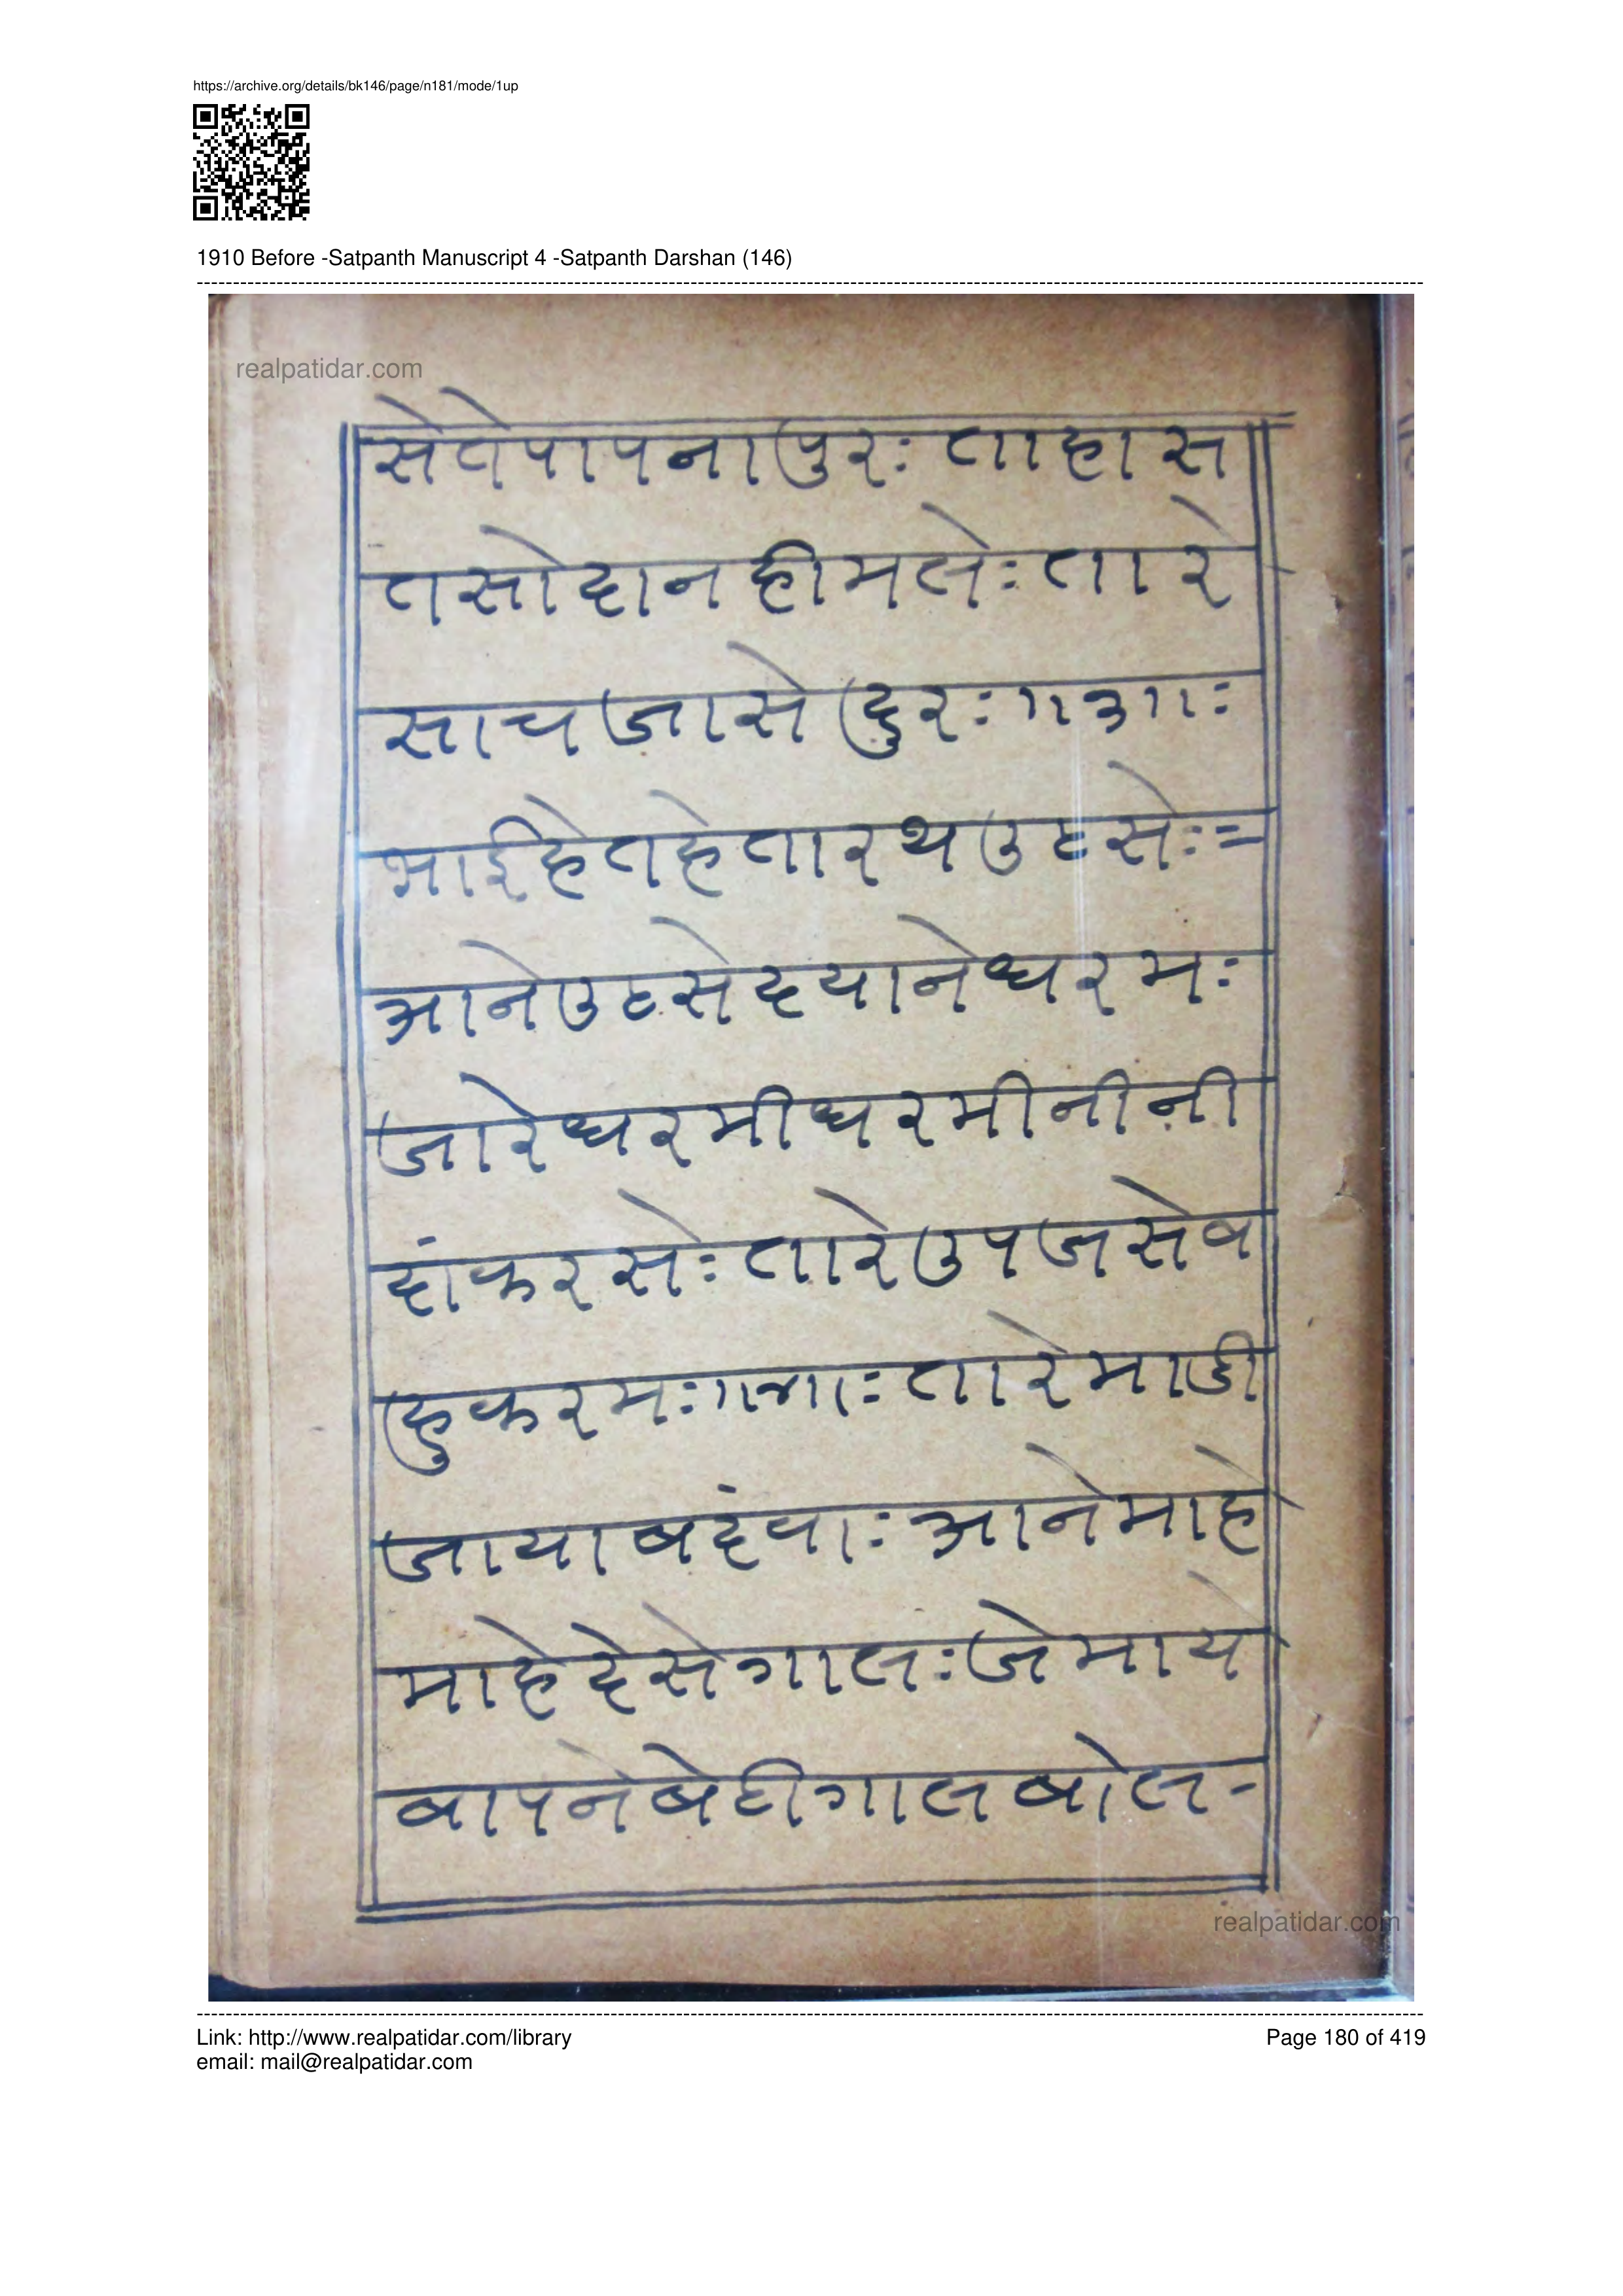 https://archive.org/details/bk146/page/n181/mode/1up
1910 Before -Satpanth Manuscript 4 -Satpanth Darshan (146)
realpatidar.com
सेतेपापनापुरः ताहास
तसोदानहीमलेः तारे
साचजासेदुरः ॥३॥ः
भाईहेतहेतारथउठसेः=
आनेउठसेदयानेधरमः
जारेधरमीधरमीनीनी
दांकरसेः तारेउपजसेब
हुकरमः ॥४॥ः तारेमाडी
जायाबदंवाः आनेमाहे
माहेदेसेगालः जेमाय
बापनेबेटीगालबोल-
realpatidar.com
Link: http://www.realpatidar.com/library
Page 180 of 419
email: mail@realpatidar.com